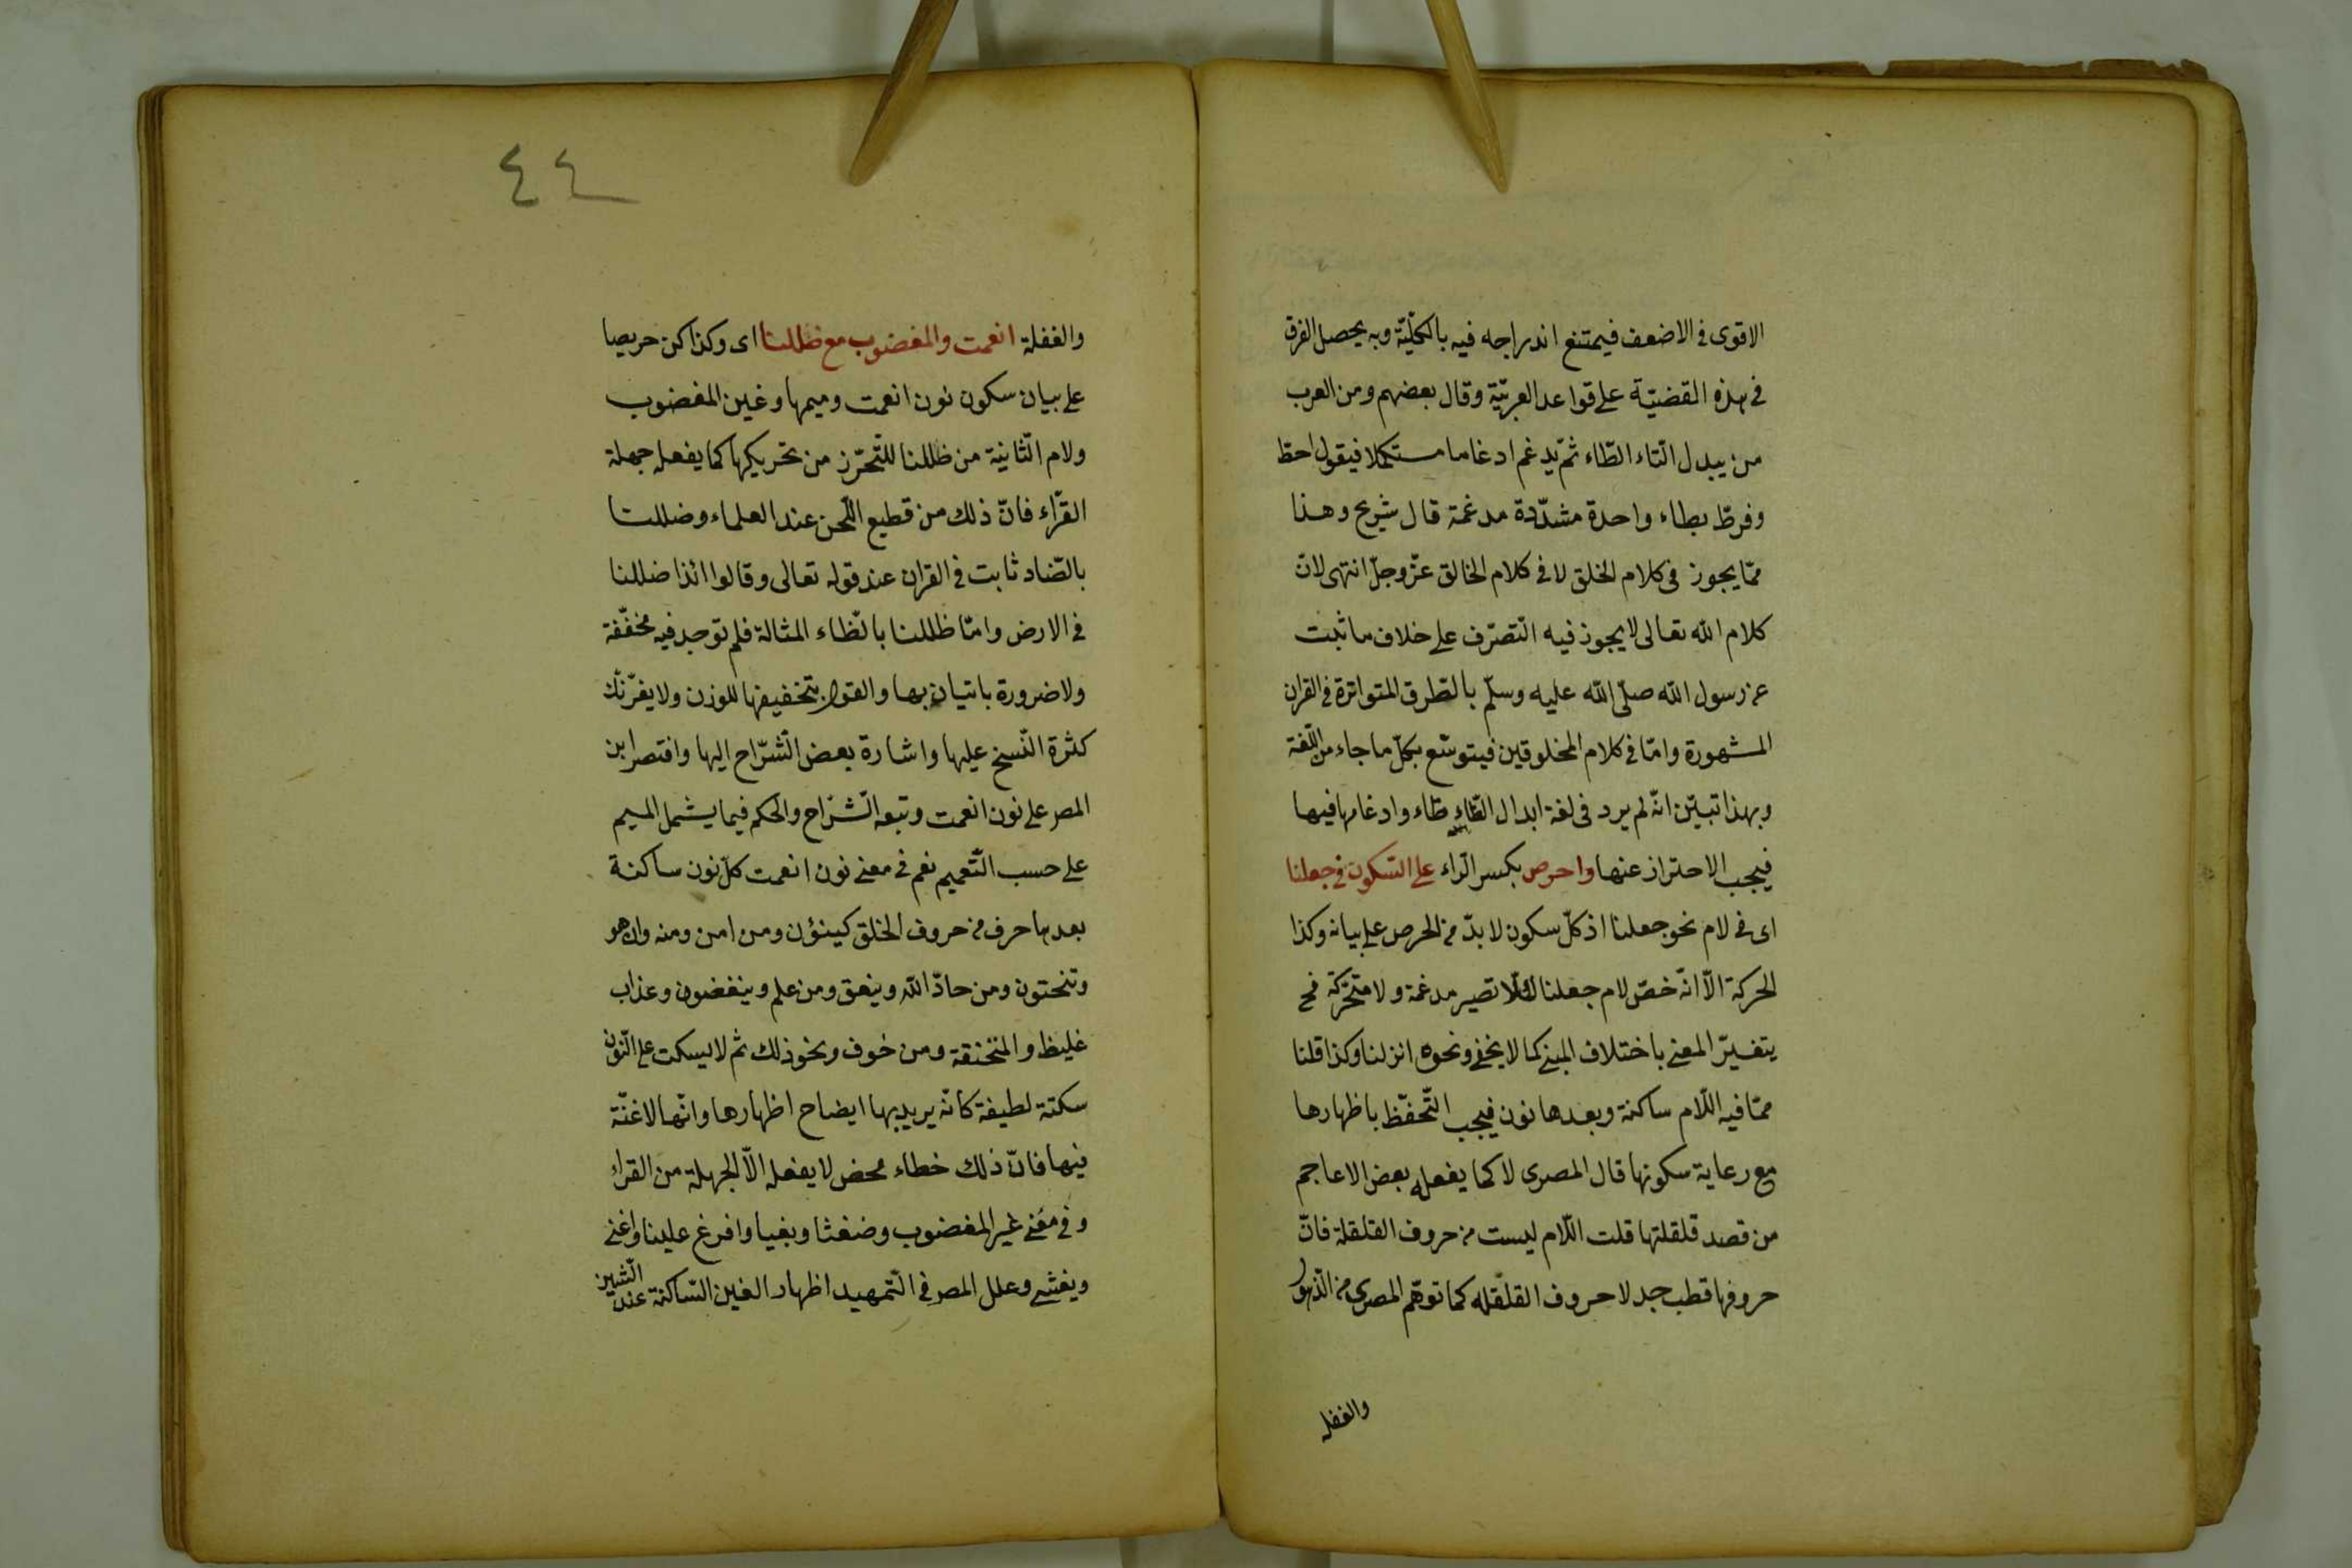 الاقوى فى الاضعف فيمتنع اندراجه فيه بالكلّيّة وبه يحصل الفرق
فى هذه القضيّة على قواعد العربيّة وقال بعضهم ومن العرب
من يبدل التاء الطّاء ثمّ يدغم ادغاما مستكملا فيقول احطّ
وفرطّ بطاء واحدة مشدّدة مدغمة قال شريح وهذا
ممّا يجوز فى كلام الخلق لا فى كلام الخالق عزّ وجلّ انتهى لانّ
كلام الله تعالى لا يجوز فيه التّصرّف على خلاف ما ثبت
عن رسول الله صلّى الله عليه وسلّم بالطّرق المتواترة فى القران
المشهورة وامّا فى كلام المخلوقين فيتوسّع بكلّ ما جاء من اللّغة
وبهذا تبيّن انّه لم يرد فى لغة ابدال الطّاء طاء وادغامها فيها
فيجب الاحتراز عنها واحرص بكسر الرّاء على السّكون فى جعلنا
اى فى لام نحو جعلنا اذ كلّ سكون لا بدّ من الحرص على بيانه وكذا
الحركة الّا انّه خصّ لام جعلنا لئلّا تصير مدغمة ولا متحرّكة فح
يتغيّر المعنى باختلاف المبنى كما لا يخفى ونحوه انزلنا وكذا قلنا
ممّا فيه اللّام ساكنة وبعدها نون فيجب التّحفّظ باظهارها
مع رعاية سكونها قال المصرى لا كما يفعله بعض الاعاجم
من قصد قلقلتها قلت اللّام ليست من حروف القلقلة فانّ
حروفها قطب جد لا حروف القلقله كما توهّم المصرى من الذّهول
والغفلة
٤٤
والغفلة انعمت والمغضوب مع ظللنا اى وكذا كن حريصا
على بيان سكون نون انعمت وميمها وغين المغضوب
ولام الثّانية من ظللنا للتّحرّز من تحريكها كما يفعله جهلة
القرّاء فانّ ذلك من قطيع اللّحن عند العلماء وضللنا
بالضّاد ثابت فى القران عند قوله تعالى وقالوا ائذا ضللنا
فى الارض وامّا ظللنا بالظّاء المثالة فلم توجد فيه مخفّفة
ولا ضرورة باتيان بها والقول بتخفيفها للوزن ولا يغرّنّك
كثرة النّسخ عليها واشارة بعض الشّرّاح اليها واقتصر ابن
المصر على نون انعمت وتبعه الشّرّاح والحكم فيما يشمل الميم
على حسب التّعميم نعم فى معنى نون انعمت كلّ نون ساكنة
بعدها حرف من حروف الحلق كينؤن ومن امن ومنه وان هو
وتنحتون ومن حادّ الله وينعق ومن علم وينغضون وعذاب
غليظ والمنخنقة ومن خوف ونحو ذلك ثم لا يسكت على النّون
سكتة لطيفة كانّه يريد بها ايضاح اظهارها وانّها لا غنّة
فيها فانّ ذلك خطاء محض لا يفعله الّا الجهلة من القراء
وفى معنى غير المغضوب وضغثا وبغيا وافرغ علينا واغنى
ويغشى وعلل المصر فى التّمهيد اظهار الغين السّاكنة عند الشّين